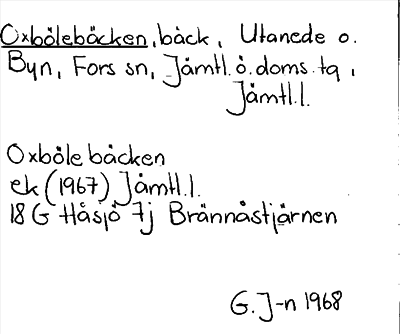 Oxbölebäcken, bäck, Utanede o.
Byn, Fors sn, Jämtl. ö. doms. tg,
Jämtl.l.
Oxbölebäcken
ek (1967) Jämtl.l.
18 G Håsjö 7j Brännåstjärnen
G. J-n 1968